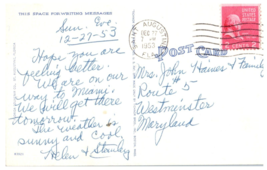 THIS SPACE FOR WRITING MESSAGES
Sun. Eve.
12-27-53
Hope you are
feeling better.
We are on our
way to Miami.
We will get there
tomorrow.
The weather is
sunny and cool
Helen & Stanley
SAINT AUGUSTINE
DEC 27
7-PM
1953
FLA.
POST CARD
2 CENTS 2
Mrs. John Hawes & Family
Route #5
Westminster
Maryland